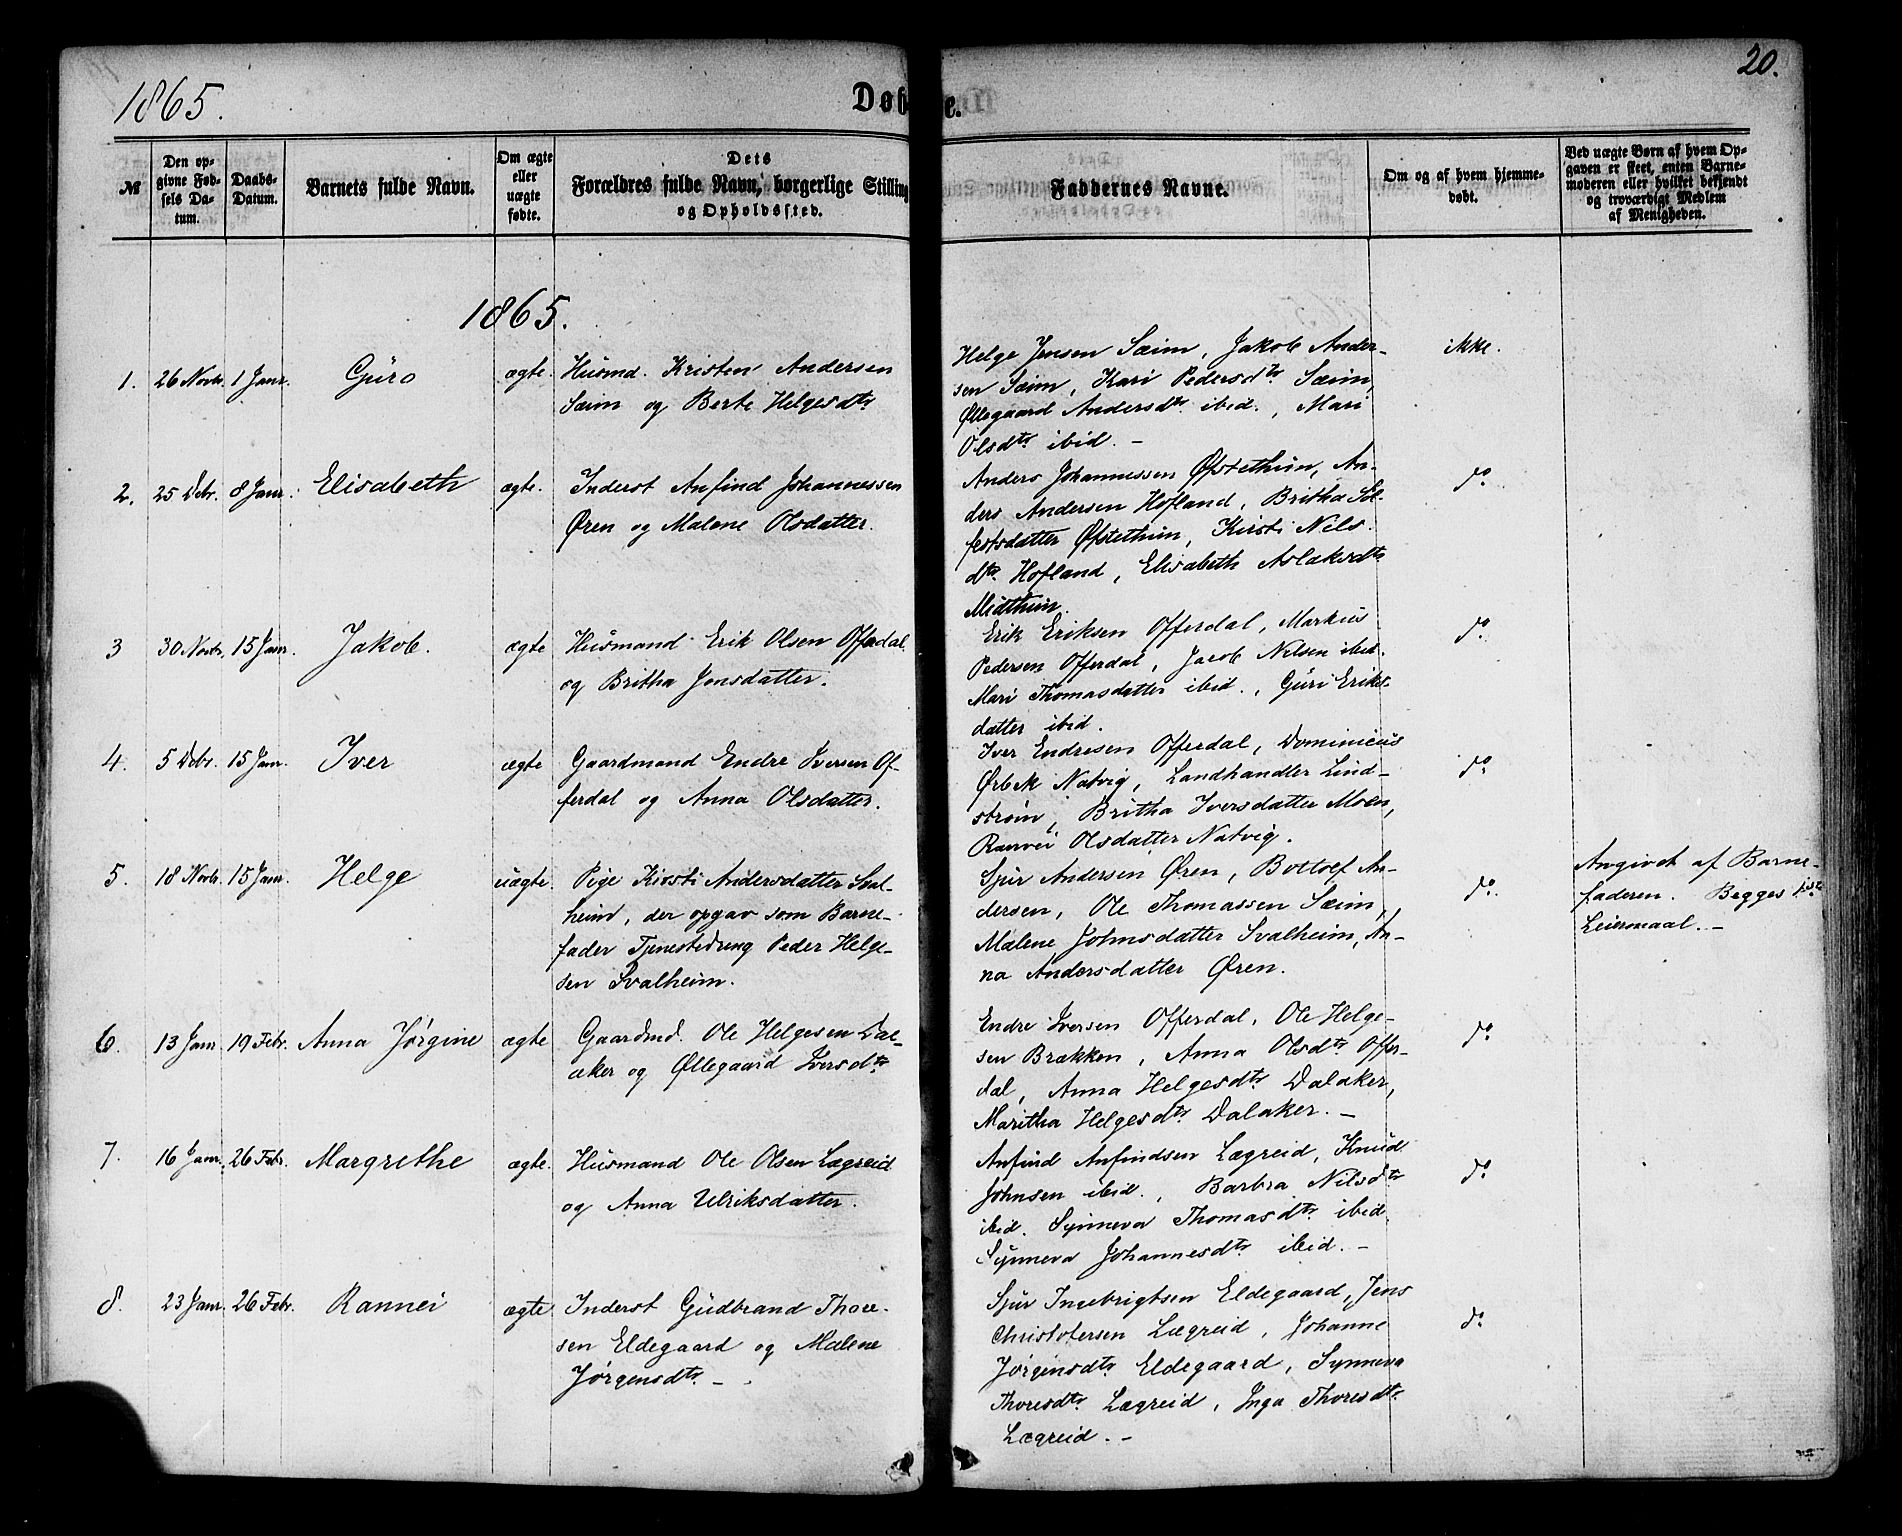 1865.
Døbte.
20.
№
Den op-
givne Fød-
sels Da-
tum.
Daabs-
Datum.
Barnets fulde Navn.
Om ægte
eller
uægte
fødte.
Dets
Forældres fulde Navn, borgerlige Stilling
og Opholdssted.
Faddernes Navne.
Om og af hvem hjemme-
døbt.
Ved uægte Børn af hvem Op-
gaven er skeet, enten Barne-
moderen eller hvilket bekjendt
og troværdigt Medlem
af Menigheden.
1865.
1. 26 Novbr. 1 Janr. Guro ægte. Husmd. Kristen Andersen
Sæim og Berte Helgesdtr
Helge Jensen Sæim, Jakob Ander-
sen Sæim, Kari Pedersdtr Sæim,
Øllegaard Andersdtr ibid., Mari
Olsdtr ibid. –
ikke.
2. 25 Debr. 8 Janr. Elisabeth ægte. Inderst Anfind Johannessen
Øren og Malene Olsdatter.
Anders Johannessen Øfstethun, An-
ders Andersen Hofland, Britha Sol-
festsdatter Øfstethun, Kirsti Nils-
dtr. Hofland, Elisabeth Aslaksdtr
Midthun.
do
3 30 Novbr. 15 Janr. Jakob. ægte Husmand Erik Olsen Offerdal
og Britha Jensdatter.
Erik Eriksen Offerdal, Markus
Pedersen Offerdal, Jacob Nilsen ibid.
Mari Thomasdatter ibid., Guri Eriks-
datter ibid.
do
4. 5 Debr. 15 Janr. Iver ægte Gaardmand Endre Iversen Of-
ferdal og Anna Olsdatter.
Iver Endresen Offerdal, Dominicus
Ørbek Natvig, Landhandler Lind-
strøm, Britha Iversdatter Moen,
Rannei Olsdatter Natvig.
do
5. 18 Novbr. 15 Janr. Helge uægte. Pige Kirsti Andersdatter Sval-
heim, der opgav som Barne-
fader Tjenestedreng Peder Helge-
sen Svalheim.
Sjur Andersen Øren, Bottolf An-
dersen, Ole Thomassen Sæim,
Malene Johnsdatter Svalheim, An-
na Andersdatter Øren.
do.
Angivet af Barne-
faderen. Begges 1ste
Leiermaal. –
6. 13 Janr 19 Febr. Anna Jørgine ægte Gaardmd. Ole Helgesen Dal-
aker og Øllegaard Iversdtr
Endre Iversen Offerdal, Ole Helge-
sen Brækken, Anna Olsdtr Offer-
dal, Anna Helgesdtr Dalaker,
Maritha Helgesdtr Dalaker. –
do
7. 16 Janr. 26 Febr. Margrethe ægte. Husmand Ole Olsen Lægreid
og Anna Ulriksdatter.
Anfind Anfindsen Lægreid, Knud
Johnsen ibid., Barbra Nilsdtr
ibid. Synneva Thomasdtr ibid.
Synneva Johannesdtr ibid. –
do
8. 23 Janr. 26 Febr. Rannei ægte Inderst Gudbrand Thore-
sen Eldegaard og Malene
Jørgensdtr. –
Sjur Ingebrigtsen Eldegaard, Jens
Christofersen Lægreid, Johanne
Jørgensdtr Eldegaard, Synneva
Thoresdtr. Lægreid, Inga Thoresdtr.
Lægreid. –
do